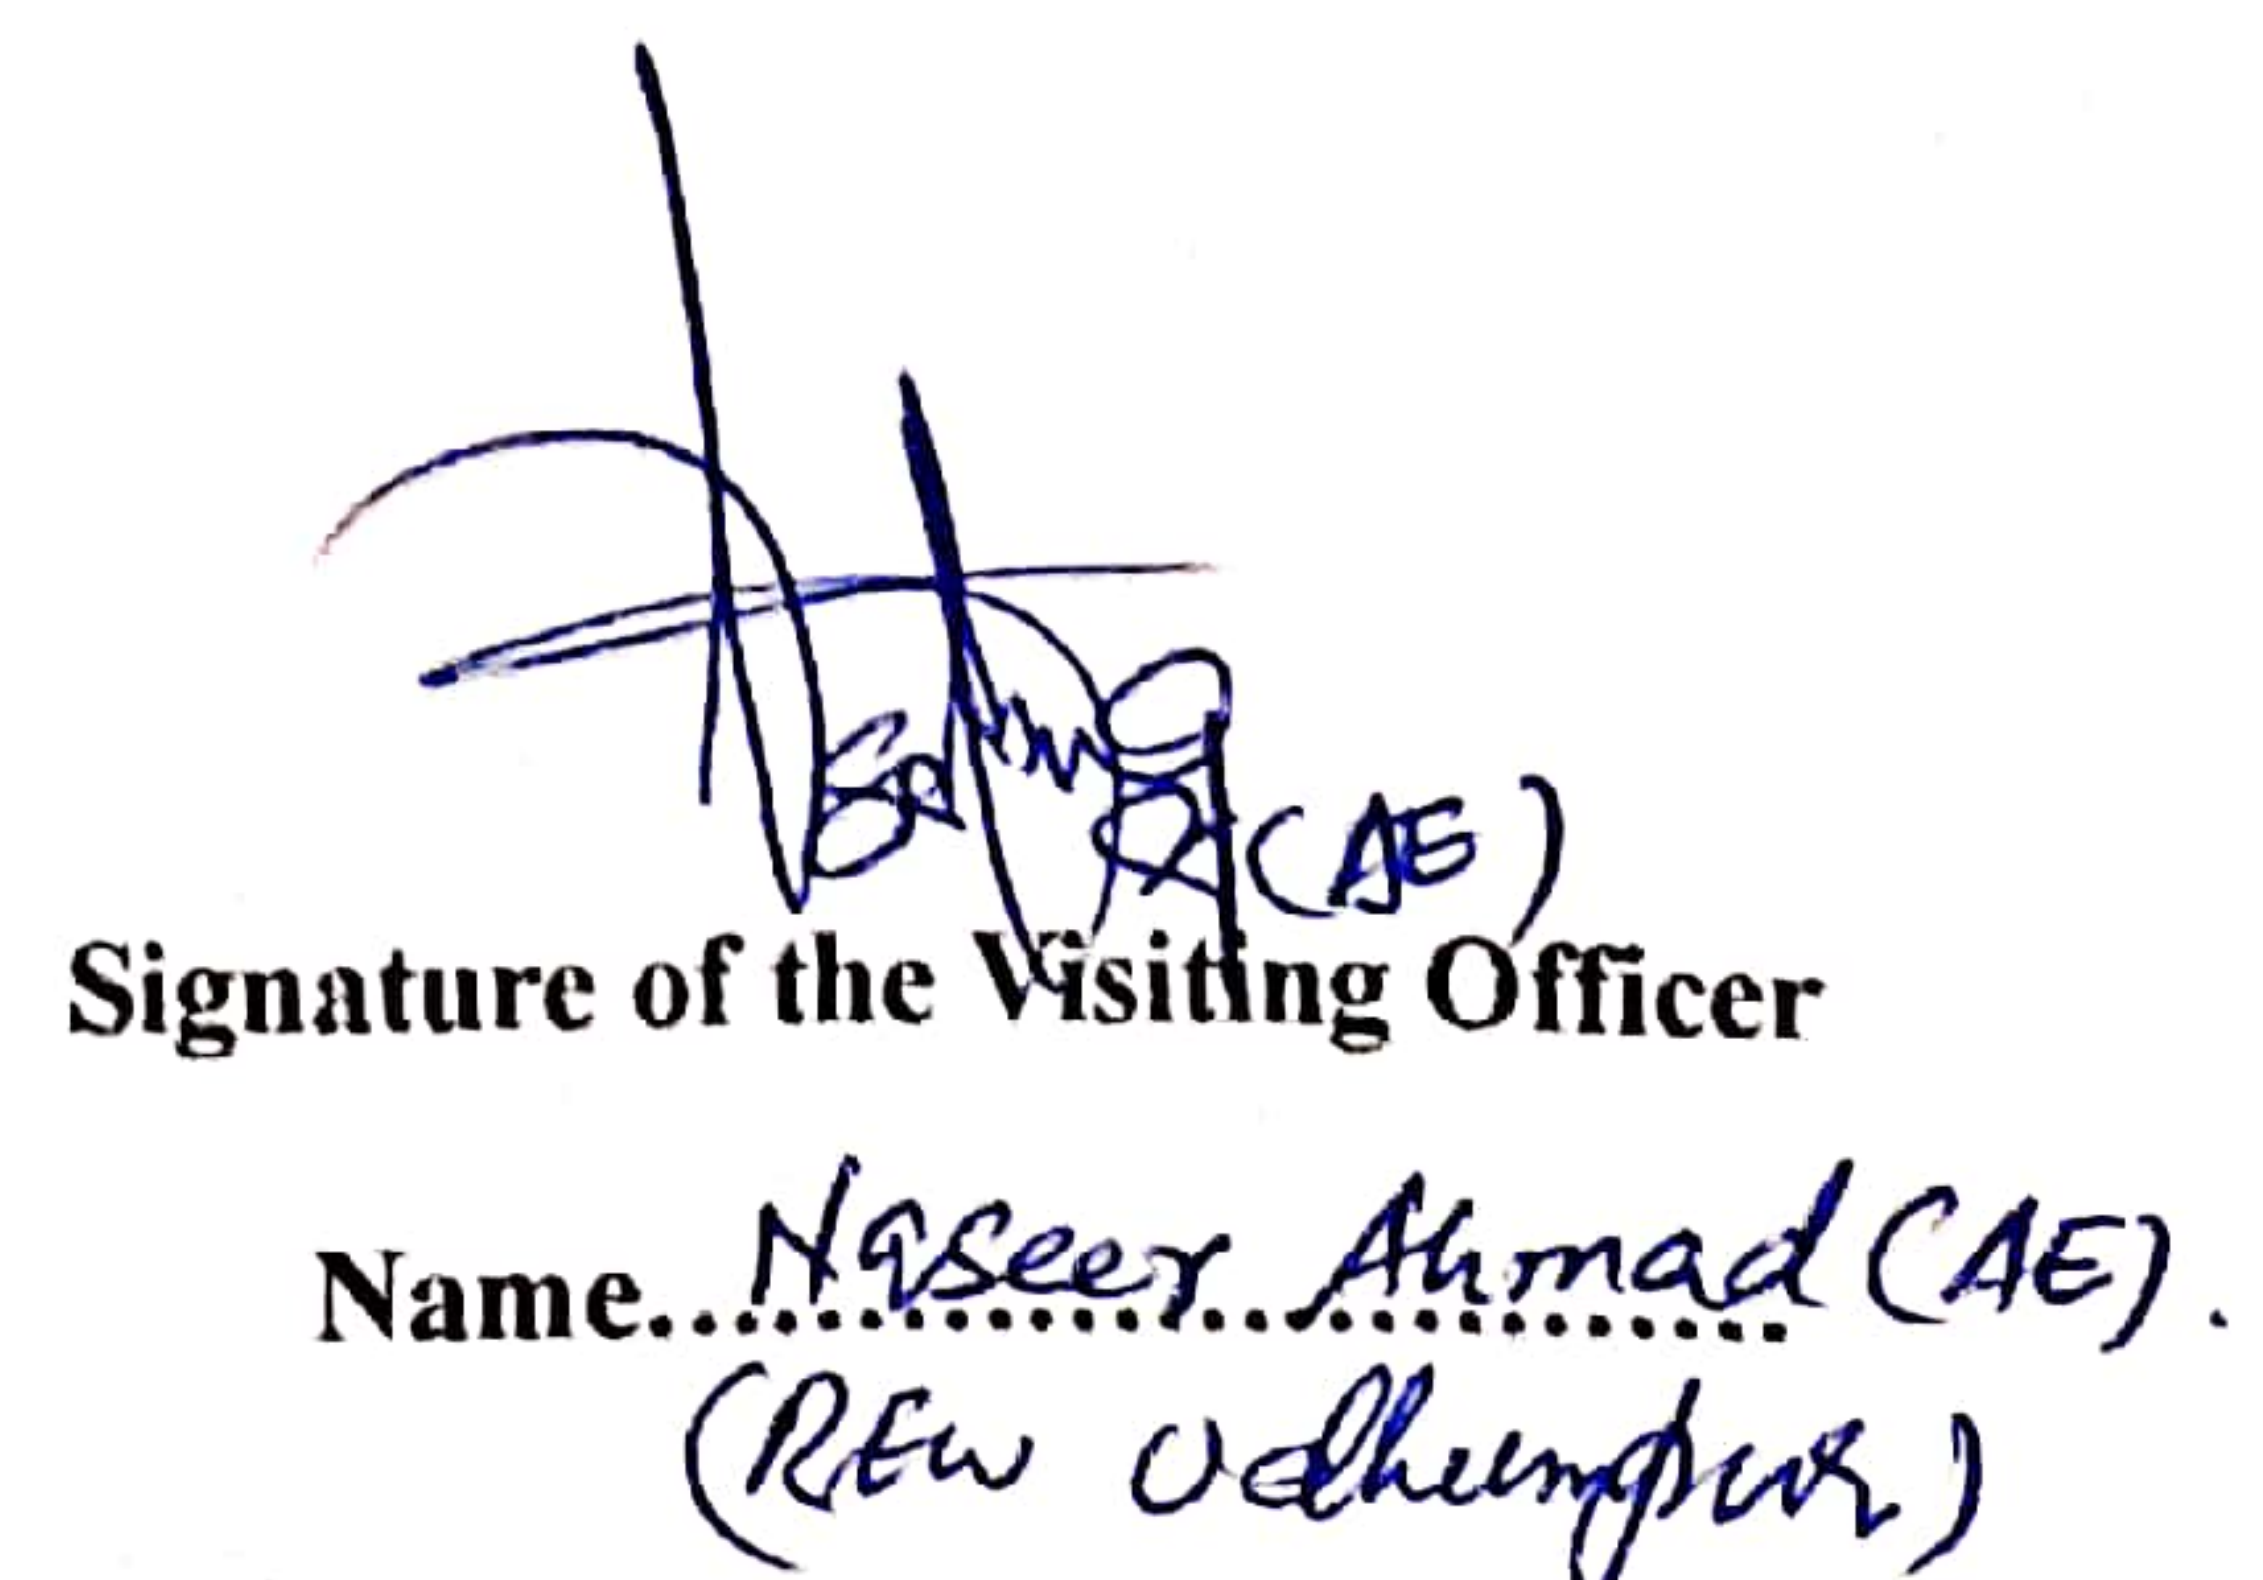 (AE)
Signature of the Visiting Officer
Name.............................. Naseer Ahmad (AE).
(REW Udhampur)